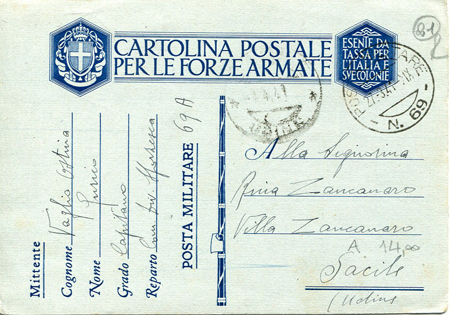 CARTOLINA POSTALE
PER LE FORZE ARMATE
ESENTE DA
TASSA PER
L'ITALIA E
SVE COLONIE
21
2
N. 69
Mittente
Cognome Vaglio
Nome Enrico
Grado Capitano
Reparto
POSTA MILITARE 69 A
Alla Signorina
Zancanaro
Villa Zancanaro
A 14.00
Sacile
(Udine)